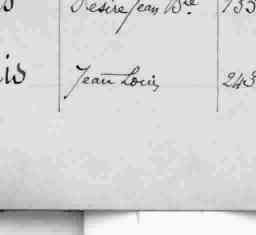 Désiré Jean Bte 133
is Jean Louis 243